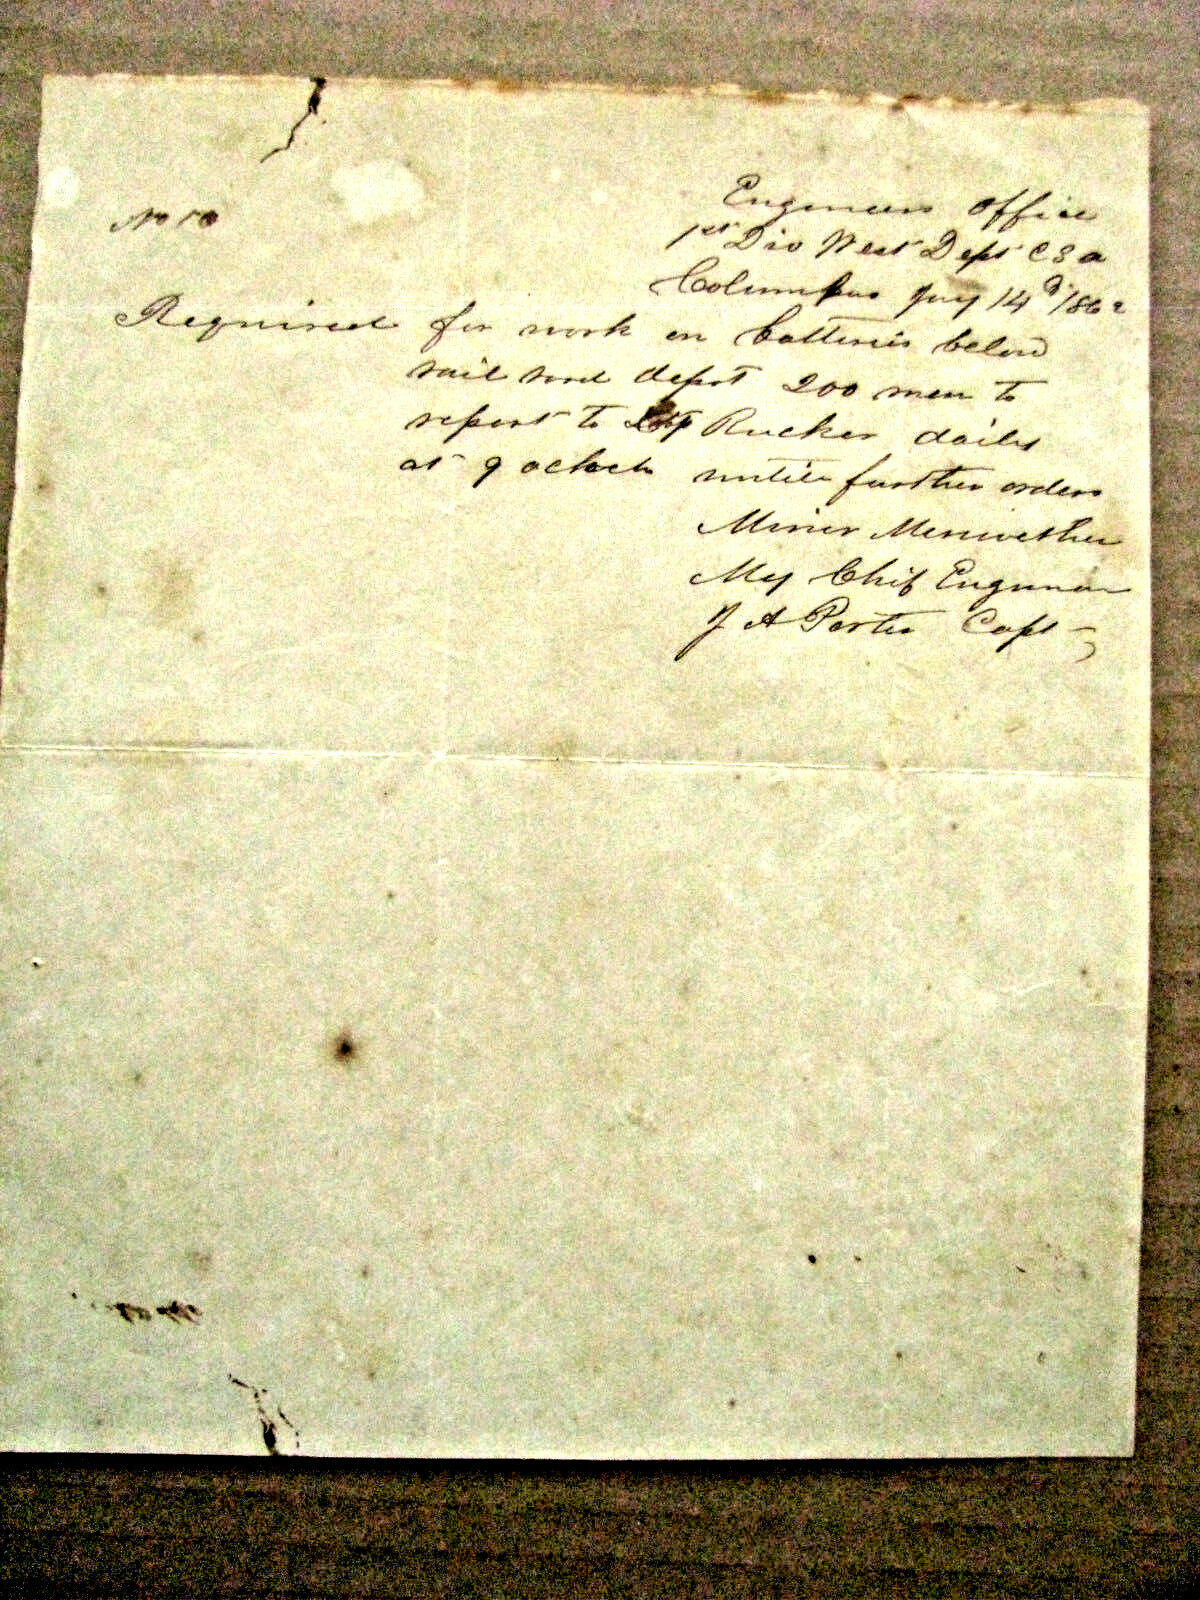 No 10
Engineers Office
1st Div West Dept C S A
Columbus Jay 14th 1862
Required for work on batteries below
rail road depot 200 men to
report to Rucker daily
at 9 oclock untill further orders
Minor Meriwether
Maj Chif Engineer
J A Porter Capt